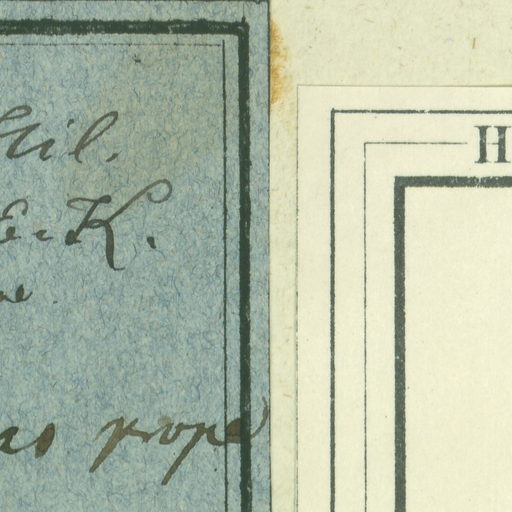 Hil.
E. K.
as prope
H